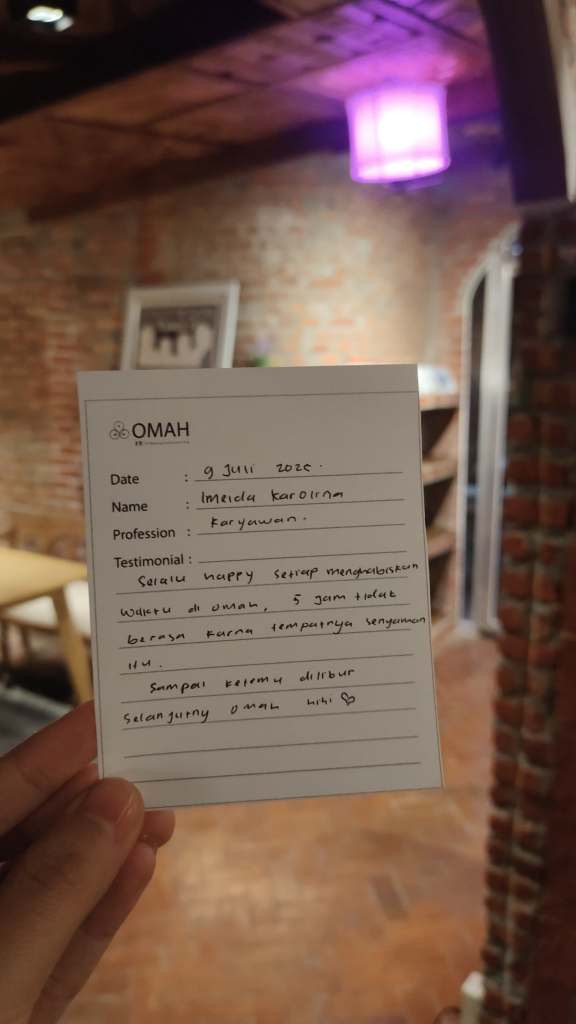 OMAH
Date : 9 Juli 2025.
Name : Imelda Karolina
Profession : Karyawan.
Testimonial :
Selalu happy setiap menghabiskan
waktu di omah, 5 jam tidak
berasa karna tempatnya senyaman
itu.
Sampai ketemu dilibur
selanjutny omah hihi